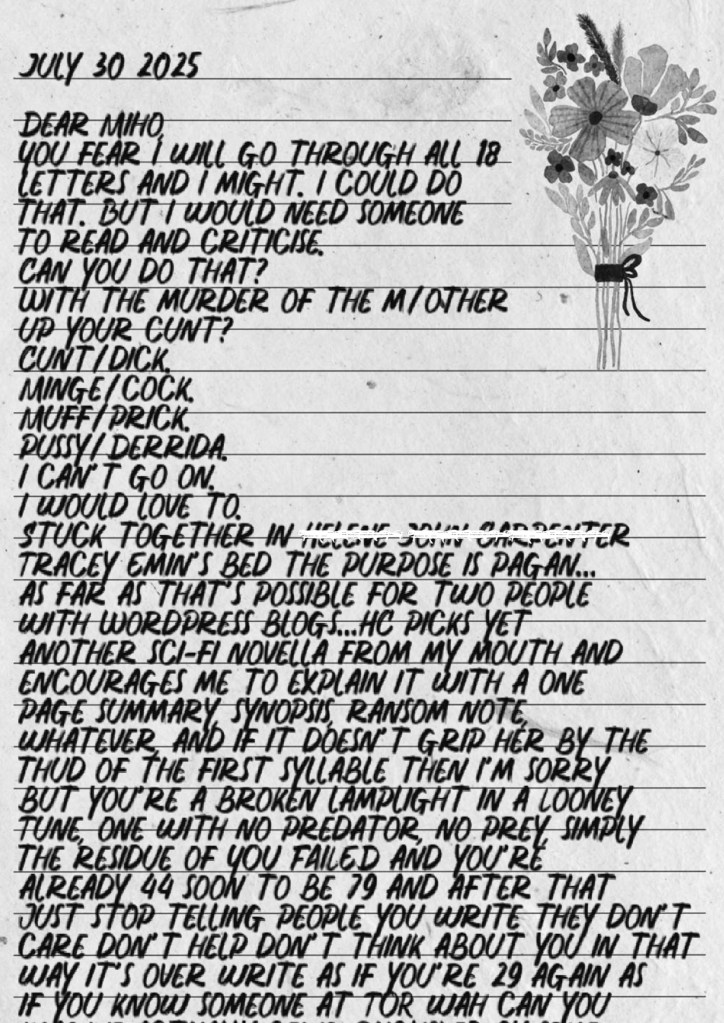 JULY 30 2025
DEAR MIHO,
YOU FEAR I WILL GO THROUGH ALL 18
LETTERS AND I MIGHT. I COULD DO
THAT. BUT I WOULD NEED SOMEONE
TO READ AND CRITICISE.
CAN YOU DO THAT?
WITH THE MURDER OF THE M/OTHER
UP YOUR CUNT?
CUNT/DICK.
MINGE/COCK.
MUFF/PRICK.
PUSSY/DERRIDA.
I CAN'T GO ON.
I WOULD LOVE TO.
STUCK TOGETHER IN HELENE JOHN CARPENTER
TRACEY EMIN'S BED THE PURPOSE IS PAGAN...
AS FAR AS THAT'S POSSIBLE FOR TWO PEOPLE
WITH WORDPRESS BLOGS...HC PICKS YET
ANOTHER SCI-FI NOVELLA FROM MY MOUTH AND
ENCOURAGES ME TO EXPLAIN IT WITH A ONE
PAGE SUMMARY, SYNOPSIS, RANSOM NOTE,
WHATEVER, AND IF IT DOESN'T GRIP HER BY THE
THUD OF THE FIRST SYLLABLE THEN I'M SORRY
BUT YOU'RE A BROKEN LAMPLIGHT IN A LOONEY
TUNE, ONE WITH NO PREDATOR, NO PREY, SIMPLY
THE RESIDUE OF YOU FAILED AND YOU'RE
ALREADY 44 SOON TO BE 79 AND AFTER THAT
JUST STOP TELLING PEOPLE YOU WRITE THEY DON'T
CARE DON'T HELP DON'T THINK ABOUT YOU IN THAT
WAY IT'S OVER WRITE AS IF YOU'RE 29 AGAIN AS
IF YOU KNOW SOMEONE AT TOR WAH CAN YOU